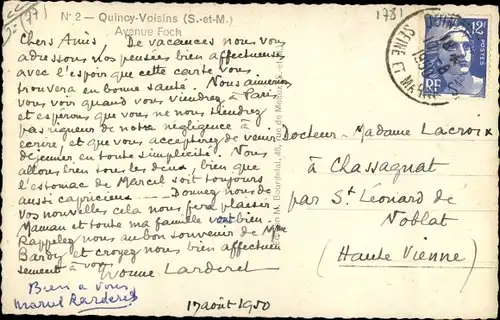 (77)
N° 2 — Quincy-Voisins (S.-et-M.)
Avenue Foch
1781
Chers Amis De vacances nous vous
adressons nos pensées bien affectueuses
avec l'espoir que cette carte vous
trouvera en bonne santé. Nous aimerions
vous voir quand vous viendrez à Paris
et espérons que vous ne nous tiendrez
pas rigueur de notre négligence à
écrire, et que vous accepterez de venir
déjeuner en toute simplicité. Nous
allons bien tous les deux bien que
l'estomac de Marcel soit toujours
aussi capricieux — Donnez nous de
vos nouvelles cela nous fera plaisir
Maman et toute ma famille vont bien.
Rappelez nous au bon souvenir de Mme
Bardy et croyez nous bien affectueu
sement à vous
Yvonne Larderet
Bien à vous
Marcel Larderet
17 août 1950
12F
RF
SEINE ET MARNE
Docteur - Madame Lacroix
à Chassagnat
par St Léonard de
Noblat
(Haute Vienne)